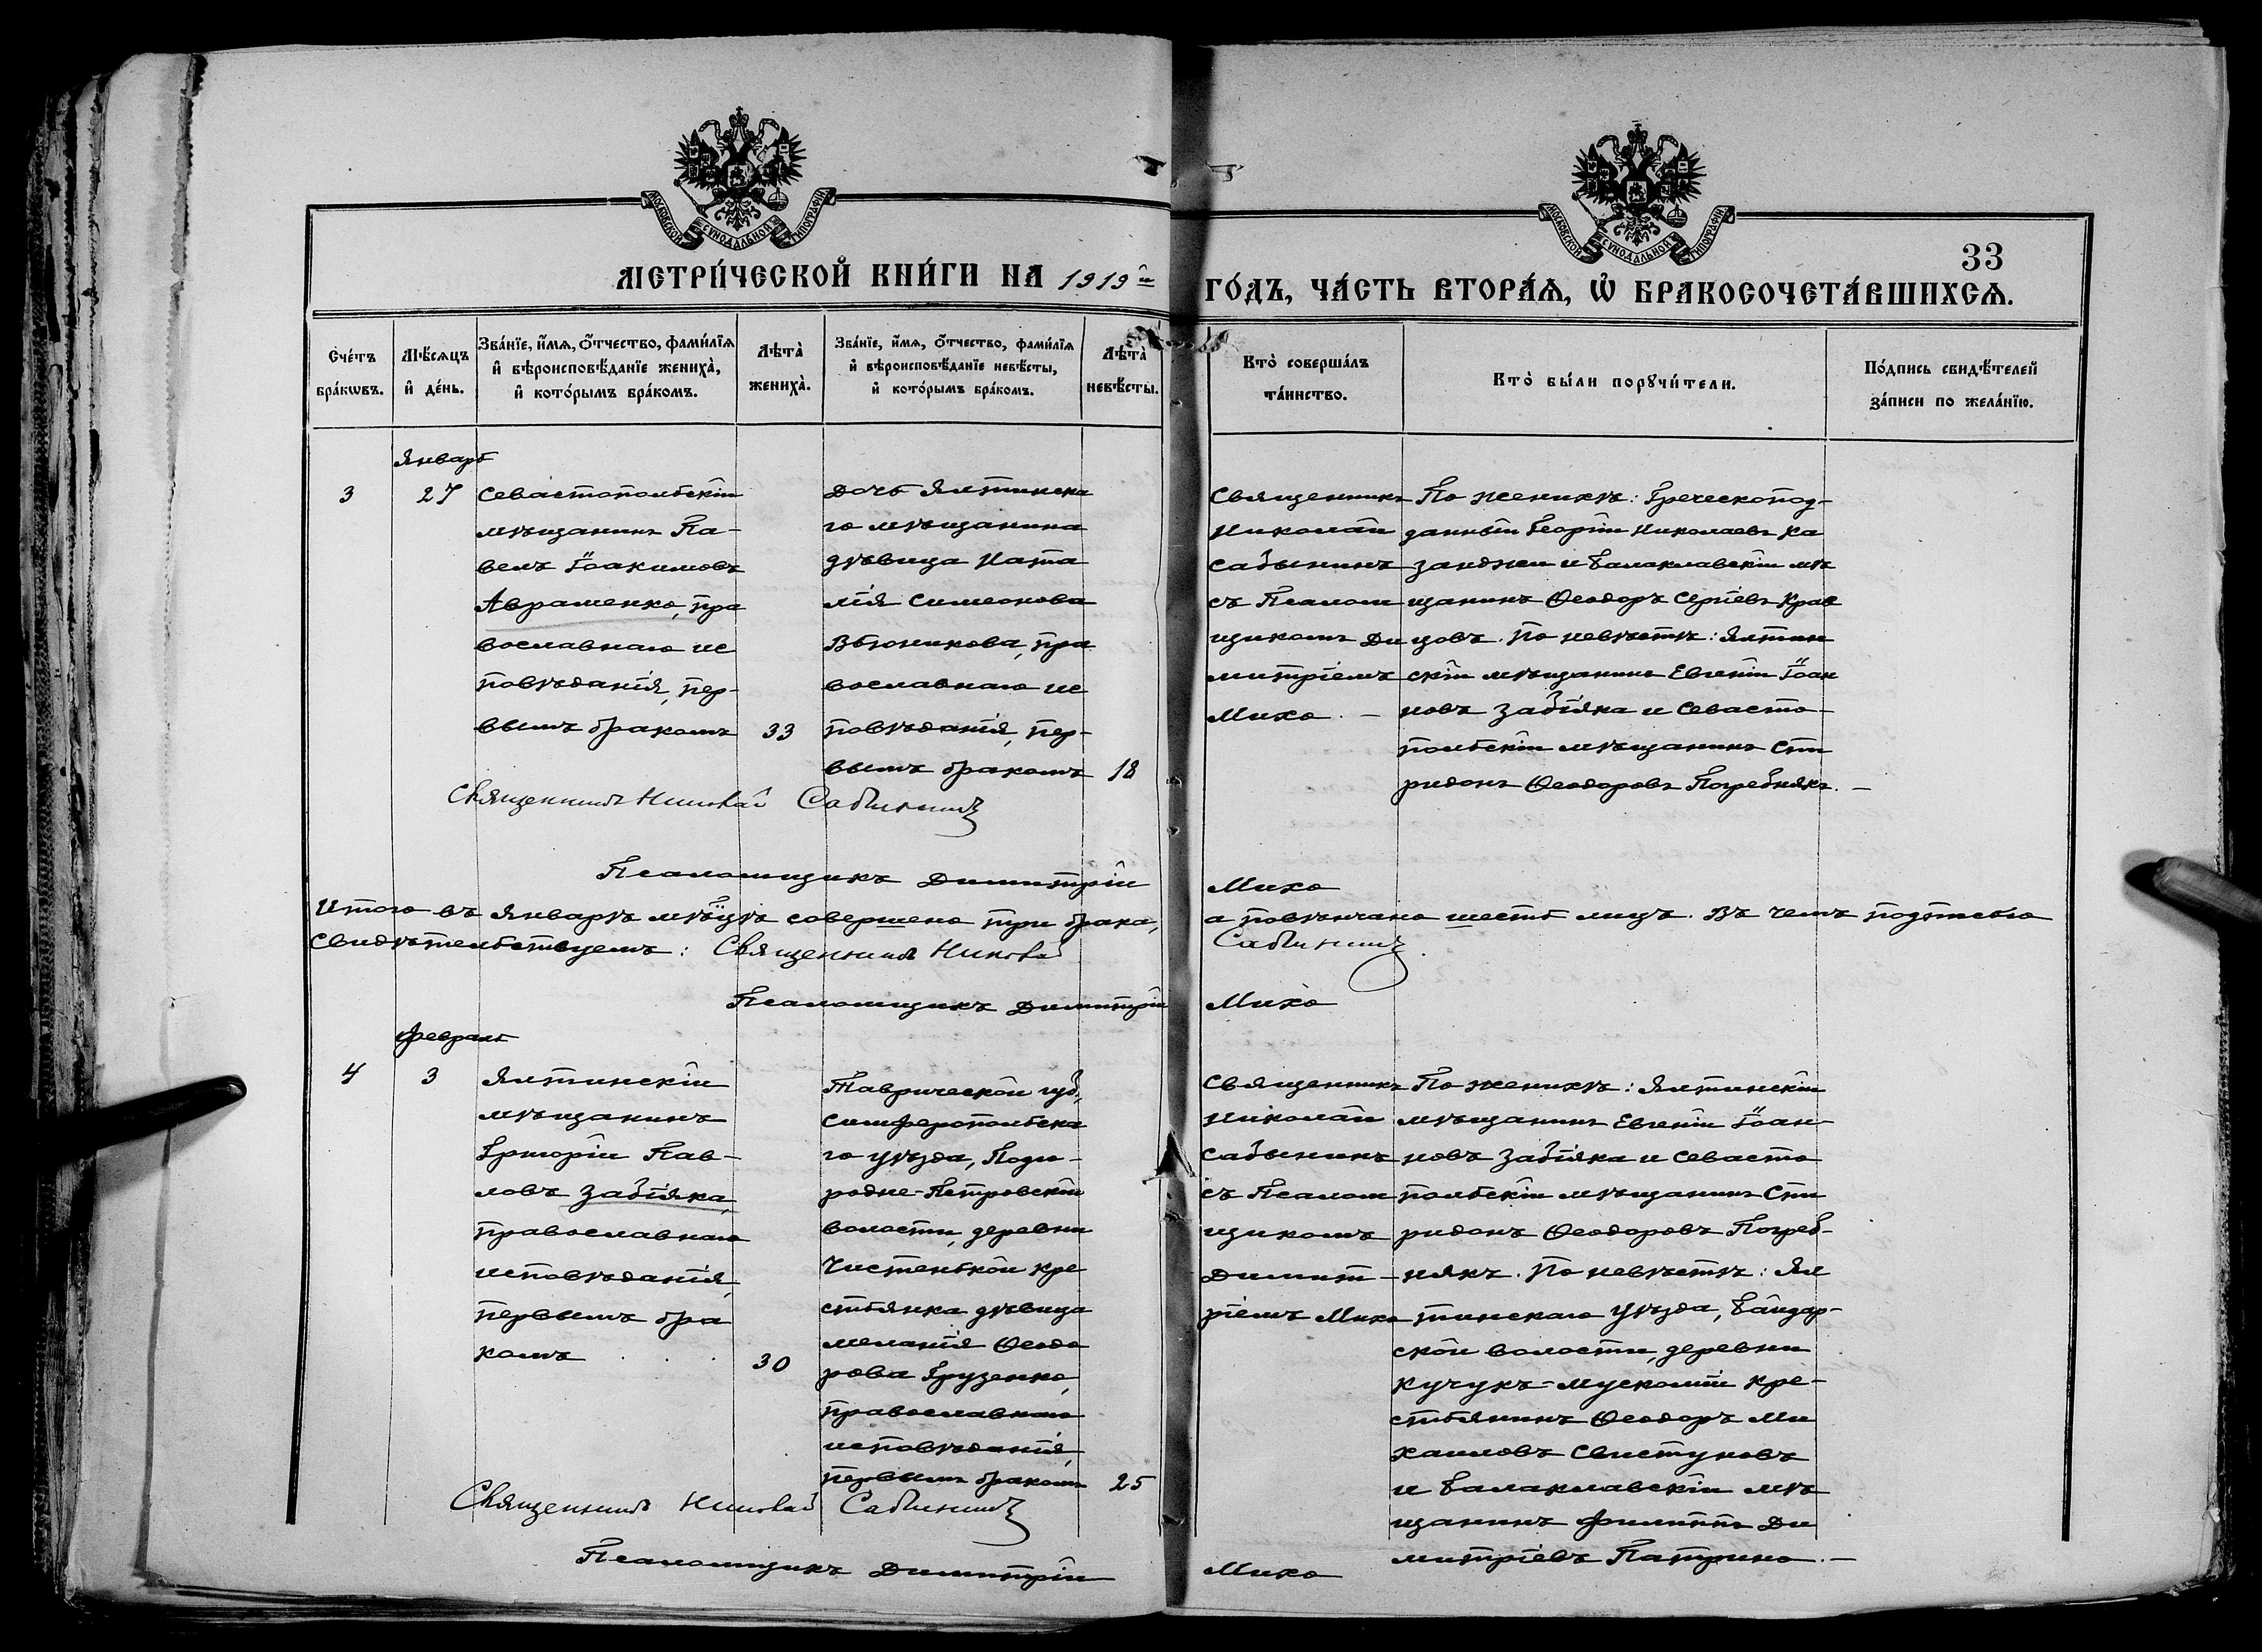 МОСКОВСКОЙ СѴНОДАЛЬНОЙ ТИПОГРАФІИ
МОСКОВСКОЙ СѴНОДАЛЬНОЙ ТИПОГРАФІИ
33
МЕТРИ́ЧЕСКОЙ КНИ́ГИ НА 1919й ГО́ДЪ, ЧА́СТЬ ВТОРА́Ѧ, Ѽ БРАКОСОЧЕТА́ВШИХСѦ.
Сче́тъ
бра́кѡвъ.
Мѣ́сѧцъ
и҆ де́нь.
Зва́нїе, и҆́мѧ, ѻ҆́тчество, фами́лїѧ
и҆ вѣроисповѣ́данїе жениха̀,
и҆ кото́рымъ бра́комъ.
Лѣта̀
жениха̀.
Зва́нїе, и҆́мѧ, ѻ҆́тчество, фами́лїѧ
и҆ вѣроисповѣ́данїе невѣ́сты,
и҆ кото́рымъ бра́комъ.
Лѣта̀
невѣ́сты.
Кто̀ соверша́лъ
та́инство.
Кто̀ бы́ли порꙋчи́тели.
По́дпись свидѣ́телей
за́писи по жела́нїю.
Январь
3
27
Севастопольскій
мѣщанинъ Па-
велъ Іоакимовъ
Авраменко, пра
вославнаго ис
повѣданія, пер-
вымъ бракомъ
33
Дочь Ялтинска
го мѣщанина
дѣвица Ната
лія Симеонова
Вьюникова, пра
вославнаго ис
повѣданія, пер-
вымъ бракомъ
18
Священникъ
Николай
Сабынинъ
съ Псалом
щикомъ Ди
митріемъ
Михо. —
По женихѣ: Греческопод-
данный Георгій Николаевъ Ка
занджи и Балаклавскій мѣ
щанинъ Ѳеодоръ Сергіевъ Крав
цовъ. По невѣстѣ: Ялтин
скій мѣщанинъ Евгеній Іоан
новъ Забіяка и Севасто-
польскій мѣщанинъ Спи
ридонъ Ѳеодоровъ Погребнякъ. —
Священникъ Николай Сабынинъ
Псаломщикъ Димитрій Михо
Итого въ Январѣ мѣсяцѣ совершено три брака, а повѣнчано шесть лицъ. Въ чемъ подписью
свидѣтельствуемъ: Священникъ Николай Сабынинъ
Псаломщикъ Димитрій Михо
Февраль
4
3
Ялтинскій
мѣщанинъ
Григорій Пав-
ловъ Забіяка,
православнаго
исповѣданія,
первымъ бра
комъ . . .
30
Таврической губ.,
Симферопольска
го уѣзда, Подго-
родне-Петровской
волости, деревни
Чистенькой кре
стьянка дѣвица
Меланія Ѳеодо
рова Грузенко,
православнаго
исповѣданія,
первымъ бракомъ
25
Священникъ
Николай
Сабынинъ
съ Псалом
щикомъ
Димит-
ріемъ Михо
По женихѣ: Ялтинскій
мѣщанинъ Евгеній Іоан-
новъ Забіяка и Севасто
польскій мѣщанинъ Спи
ридонъ Ѳеодоровъ Погреб-
някъ. По невѣстѣ: Ял
тинскаго уѣзда, Байдар-
ской волости, деревни
Кучукъ-Мускоміи кре-
стьянинъ Ѳеодоръ Ми
хаиловъ Свистуновъ
и Балаклавскій мѣ
щанинъ Филиппъ Ди
митріевъ Патрино. —
Священникъ Николай Сабынинъ
Псаломщикъ Димитрій Михо